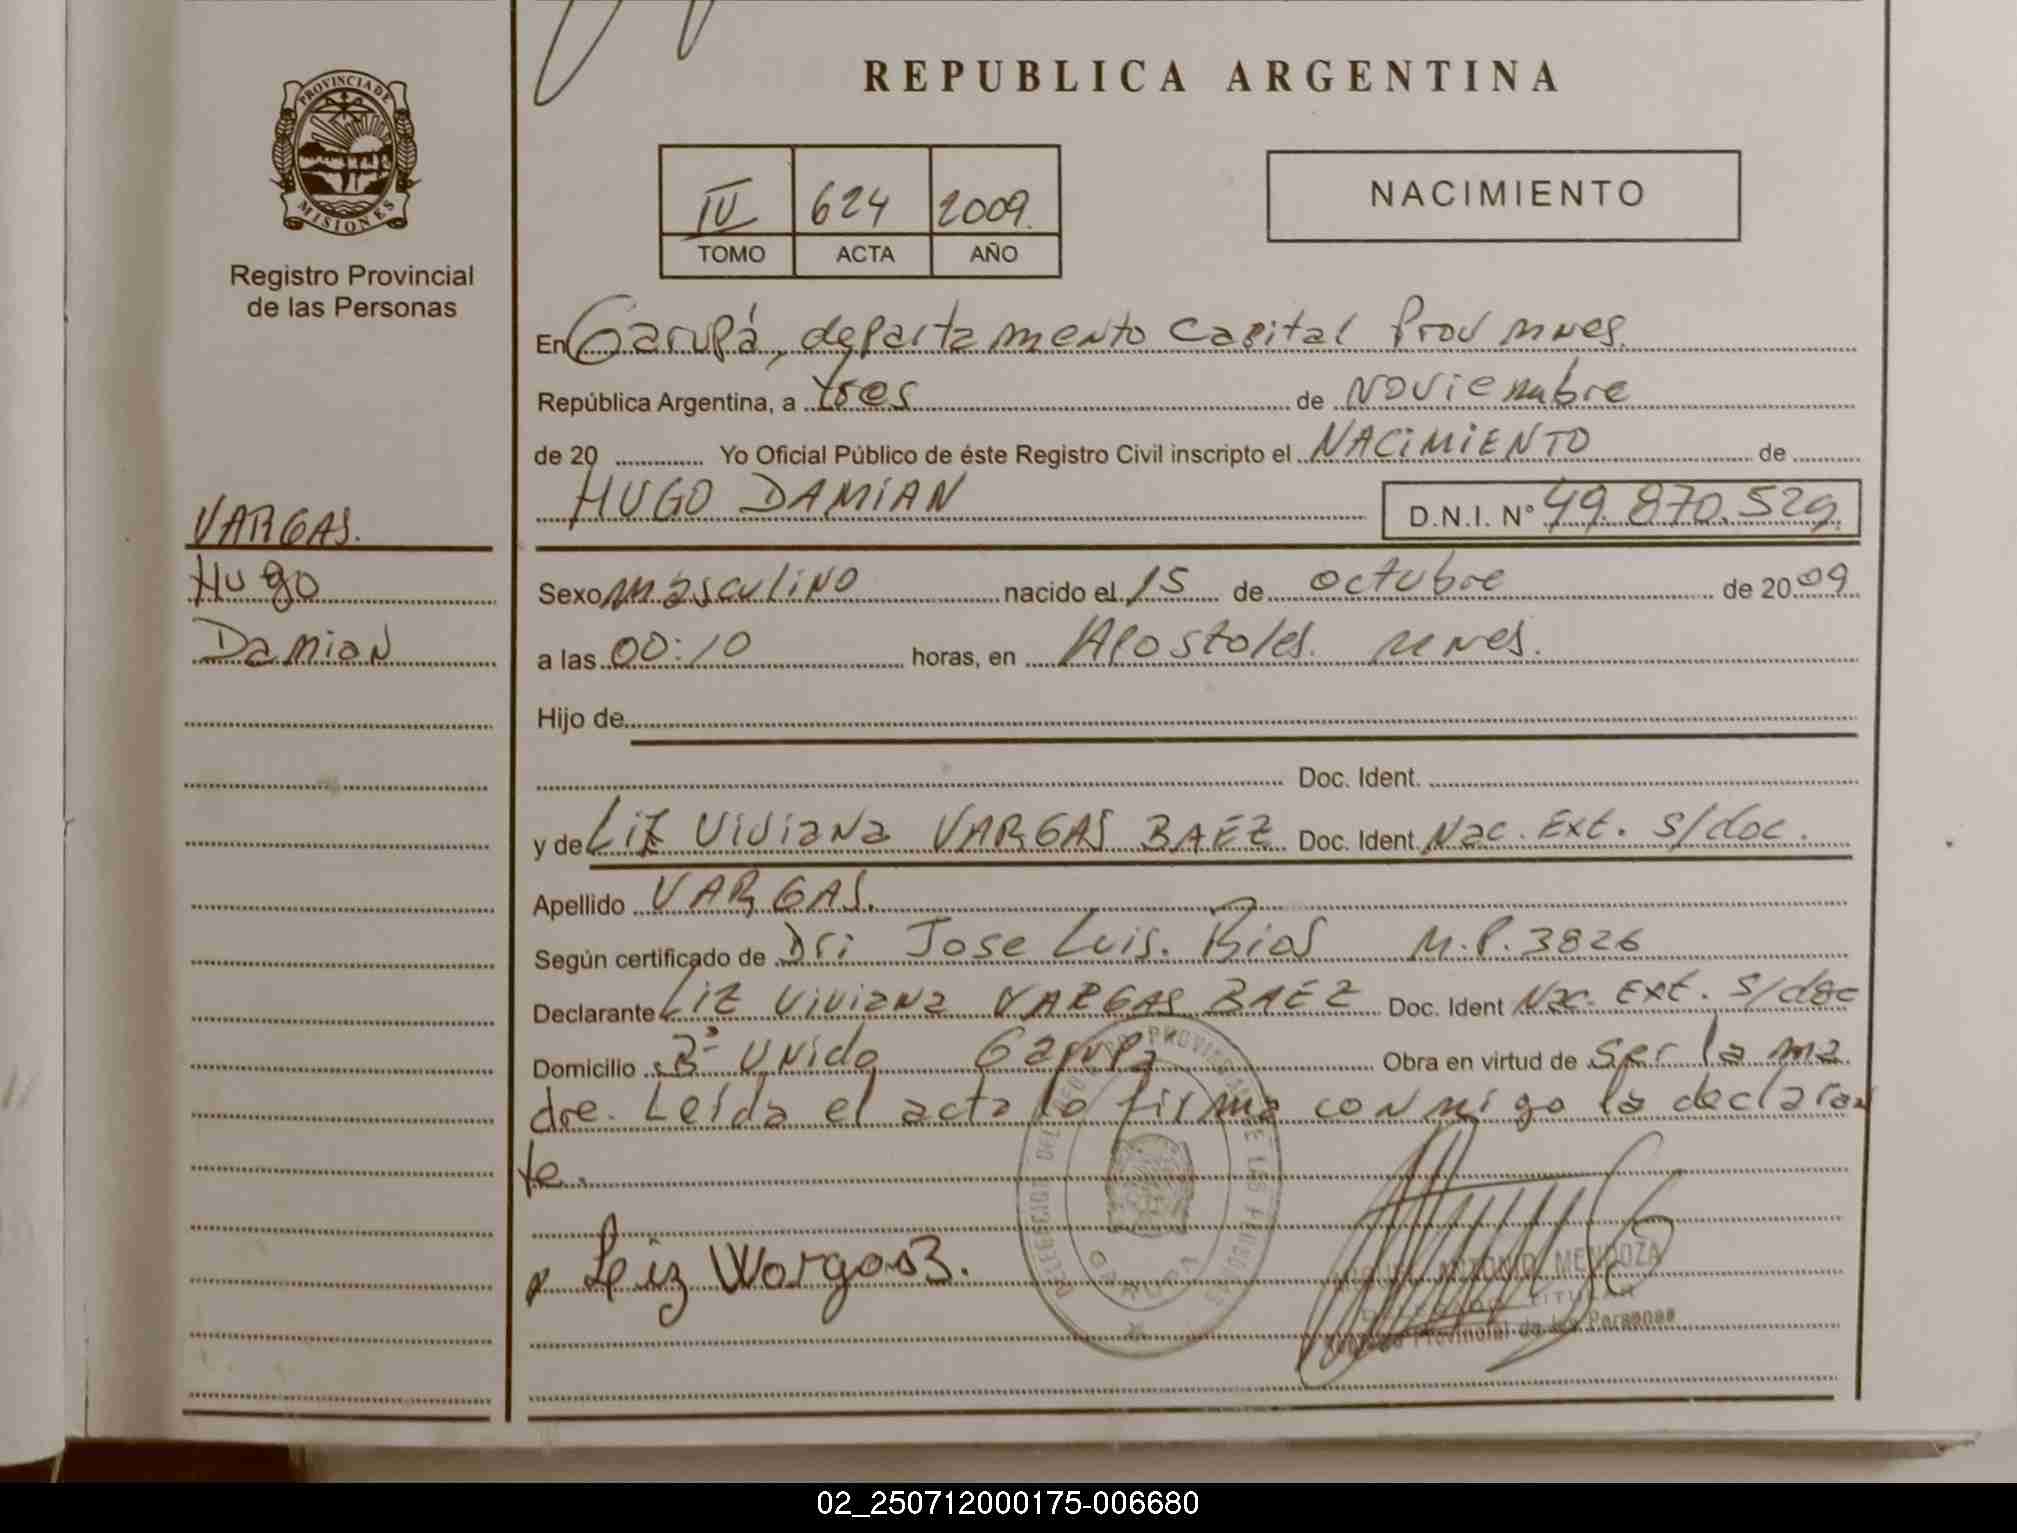 PROVINCIA DE
MISIONES
Registro Provincial
de las Personas
VARGAS.
Hugo
Damian
REPUBLICA ARGENTINA
IV 624 2009.
TOMO ACTA AÑO
NACIMIENTO
En Garupá, departamento Capital Prov Mnes.
República Argentina, a tres de Noviembre
de 20 Yo Oficial Público de éste Registro Civil inscripto el NACIMIENTO de
HUGO DAMIAN D.N.I. N° 49.870.529
Sexo masculino nacido el 15 de octubre de 2009
a las 00:10 horas, en Apostoles. Mnes.
Hijo de
Doc. Ident.
y de Liz Viviana VARGAS BAEZ Doc. Ident. Nac. Ext. s/doc.
Apellido VARGAS.
Según certificado de Dr: Jose Luis. Rios M.P. 3826
Declarante Liz Viviana VARGAS BAEZ Doc. Ident Nac. Ext. s/doc
Domicilio B° Unido Garupa Obra en virtud de ser la ma
dre. Leída el acta la firma conmigo la declaran
te.
Leiz Vorgas B.
GARUPA
ANTONIO MENDOZA
TITULAR
Provincial de las Personas
02_250712000175-006680